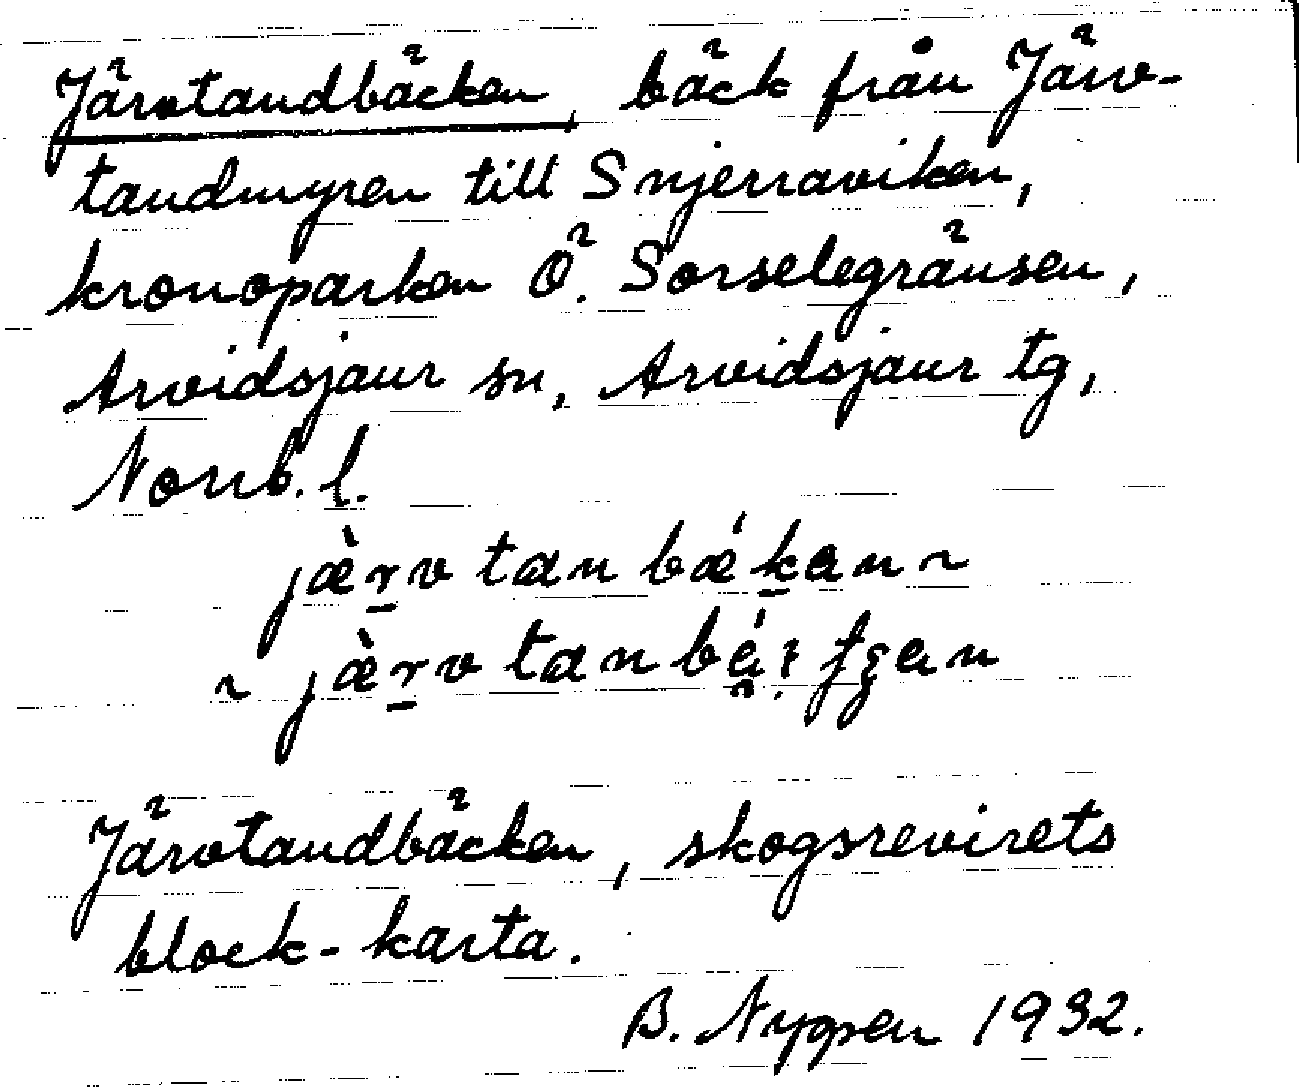 Järvtandbäcken, bäck från Järv-
tandmyren till Snjerraviken,
kronoparken Ö. Sorselegränsen,
Arvidsjaur sn, Arvidsjaur tg,
Norrb. l.
jæ̀r̠v tan bǽk̠an ~
~ jæ̀r̠v tan
Järvtandbäcken, skogsrevirets
block-karta.
B. Nygren 1932.